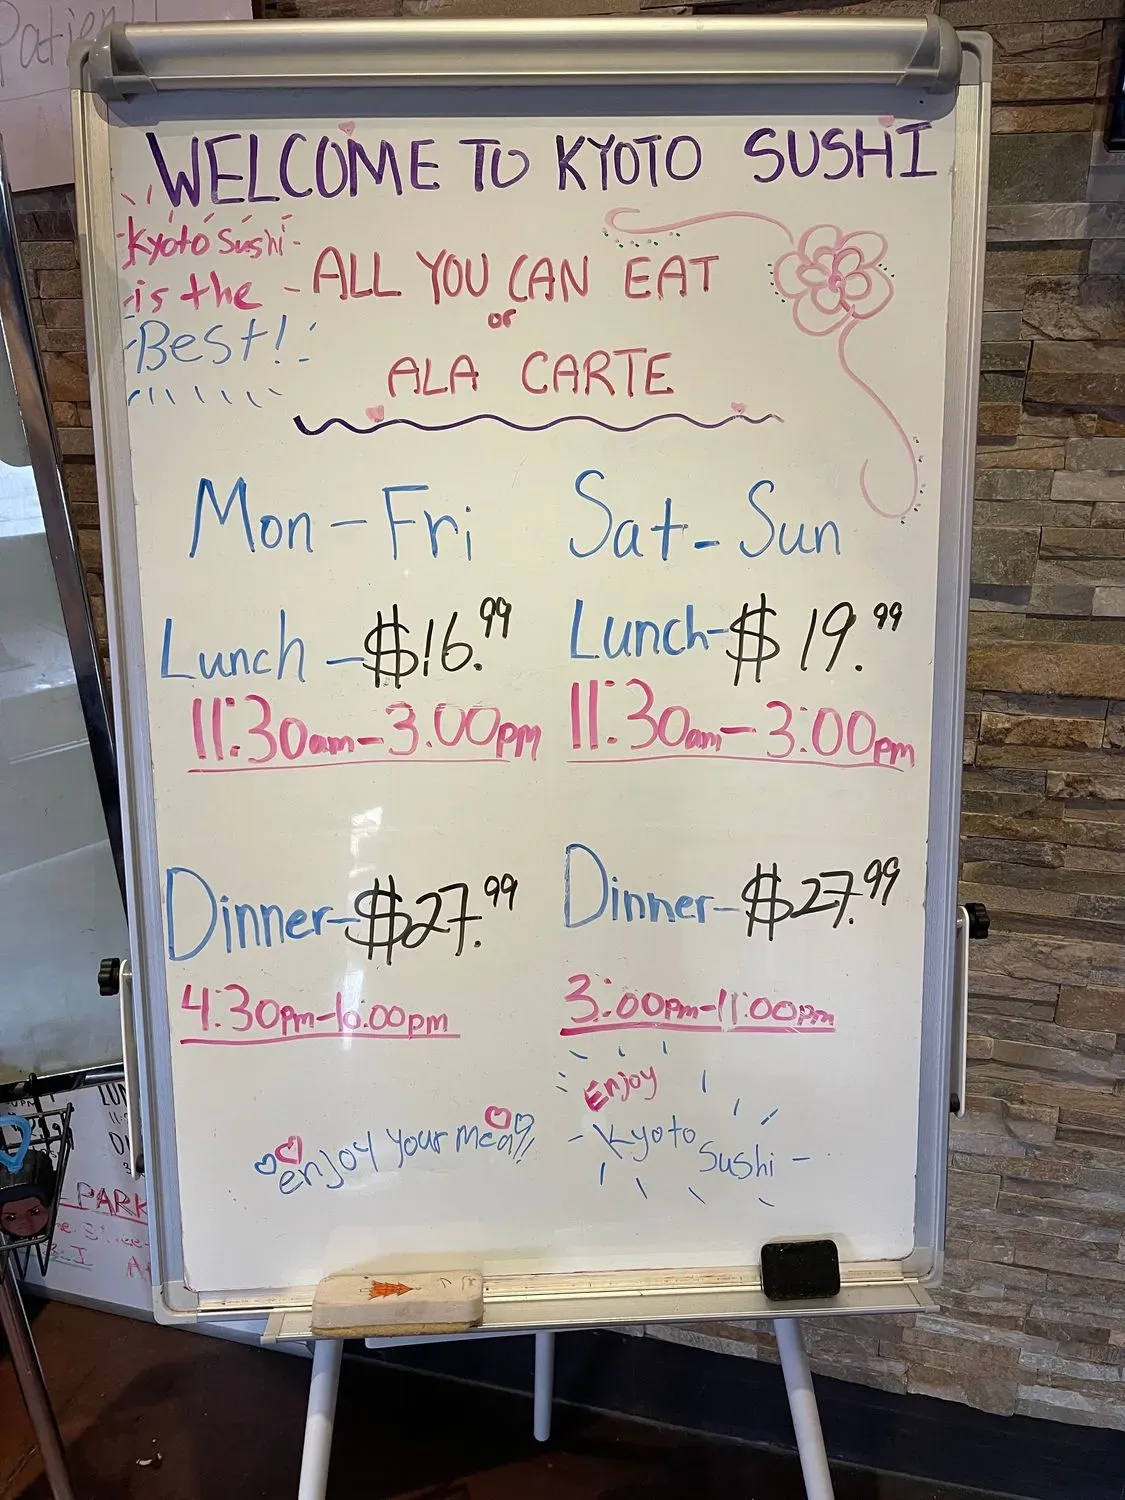 Patien
WELCOME TO KYOTO SUSHI
Kyoto Sushi
is the
Best!
ALL YOU CAN EAT
or
ALA CARTE
Mon-Fri
Lunch - $16.99
11:30am-3:00pm
Dinner-$27.99
4:30pm-10:00pm
Sat-Sun
Lunch-$19.99
11:30am-3:00pm
Dinner-$27.99
3:00pm-11:00pm
enjoy your meal!!
Enjoy
Kyoto
Sushi
PARK